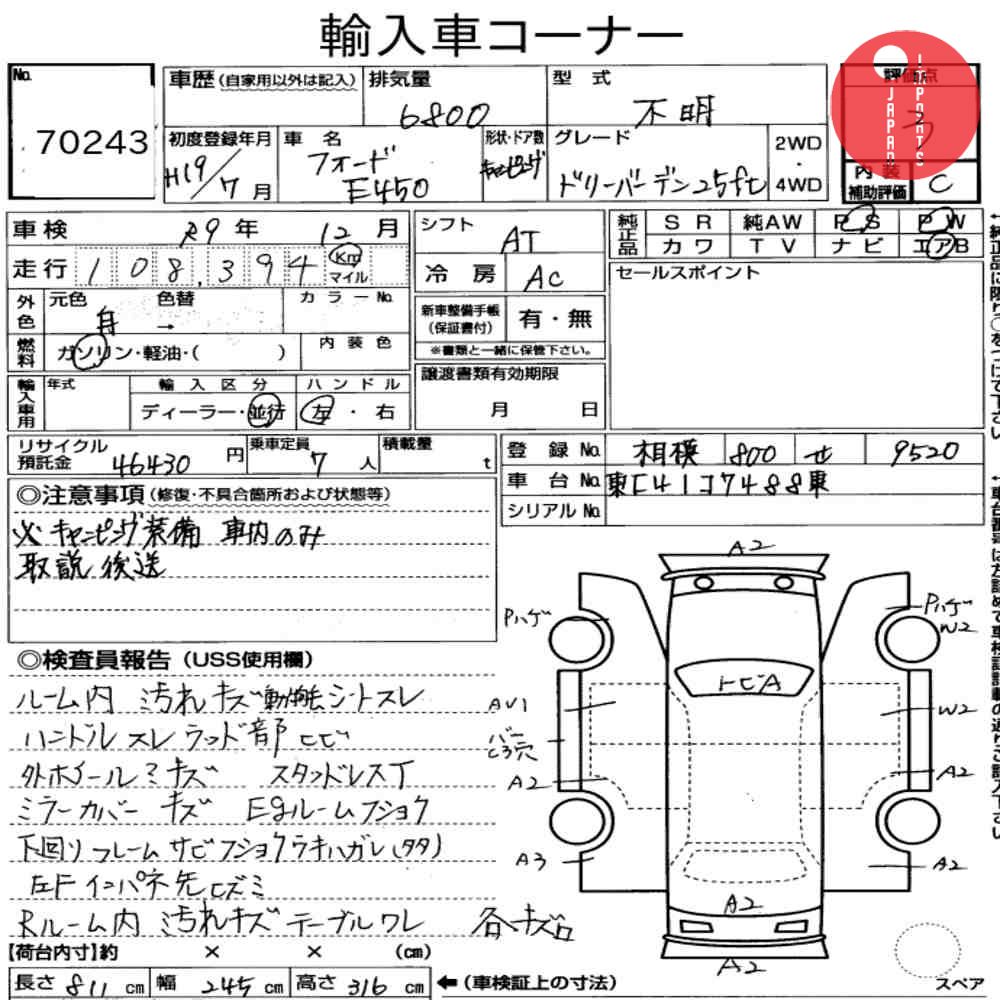 輸入車コーナー
No.
70243
車歴(自家用以外は記入)
排気量
6800
型式
不明
評価点
3
JAPAN IMPORTS
初度登録年月
H19/7月
車名
フォード
E450
形状・ドア数
キャンピング
グレード
ドリーバーデン25ft
2WD
・
4WD
内装
補助評価
C
車検
R9年 12月
走行
108,394
Km
マイル
シフト
AT
冷房
AC
純正品
SR 純AW PS PW
カワ TV ナビ エアB
セールスポイント
外色
元色
色替
カラーNo.
→
燃料
ガソリン・軽油・( )
内装色
新車整備手帳
(保証書付)
有・無
※書類と一緒に保管下さい。
輸入車用
年式
輸入区分
ハンドル
ディーラー・並行
左・右
譲渡書類有効期限
月 日
リサイクル
預託金
46430円
乗車定員
7人
積載量
t
登録No.
相模 800 せ 9520
車台No.
東[41]7488東
シリアルNo.
◎注意事項(修復・不具合箇所および状態等)
※キャンピング装備 車内のみ
取説後送
◎検査員報告(USS使用欄)
ルーム内 汚れキズ シートスレ
ハンドルスレ ウッド部ヒビ
外ホイールミキズ
ミラーカバーキズ Egルームフショク
下回りフレームサビフショクラキハガレ(タタ)
左Fインパネ先ヒズミ
Rルーム内 汚れキズ テーブルワレ 各キズ
A2
Pハゲ
Pハゲ
W2
トビA
AV1
W2
バートコ穴
A2
A2
A3
A2
A2
A2
スペア
【荷台内寸】約 × × (cm)
長さ 811 cm 幅 245 cm 高さ 316 cm
←(車検証上の寸法)